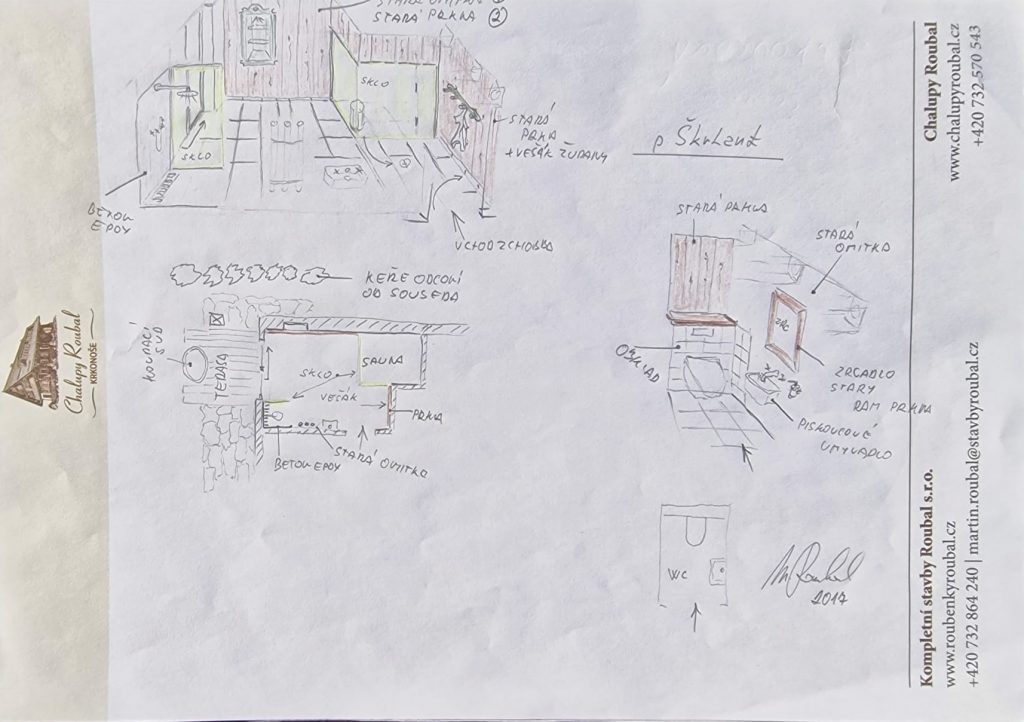 STARÁ PRKNA ②
SKLO
SKLO
STARÁ
PRKNA
+ VEŠÁK ŽUPANY
BETON
EPOY
VCHOD Z CHODBA
p Škrland
KEŘE ODCONÍ
OD SOUSEDA
KOUPACÍ
SUD
TERASA
SAUNA
SKLO
VEŠÁK
PRKNA
STARÁ OMITKA
BETON EPOY
STARÁ PRKNA
STARÁ
OMITKA
OBKLAD
ZRCADLO
STARY
RAM PRKNA
PISKOVCOVÉ
UMYVADLO
WC
M Roubal
2017
Chalupy Roubal
KRKONOŠE
Kompletní stavby Roubal s.r.o.
www.roubenkyroubal.cz
+420 732 864 240 | martin.roubal@stavbyroubal.cz
Chalupy Roubal
www.chalupyroubal.cz
+420 732 570 543